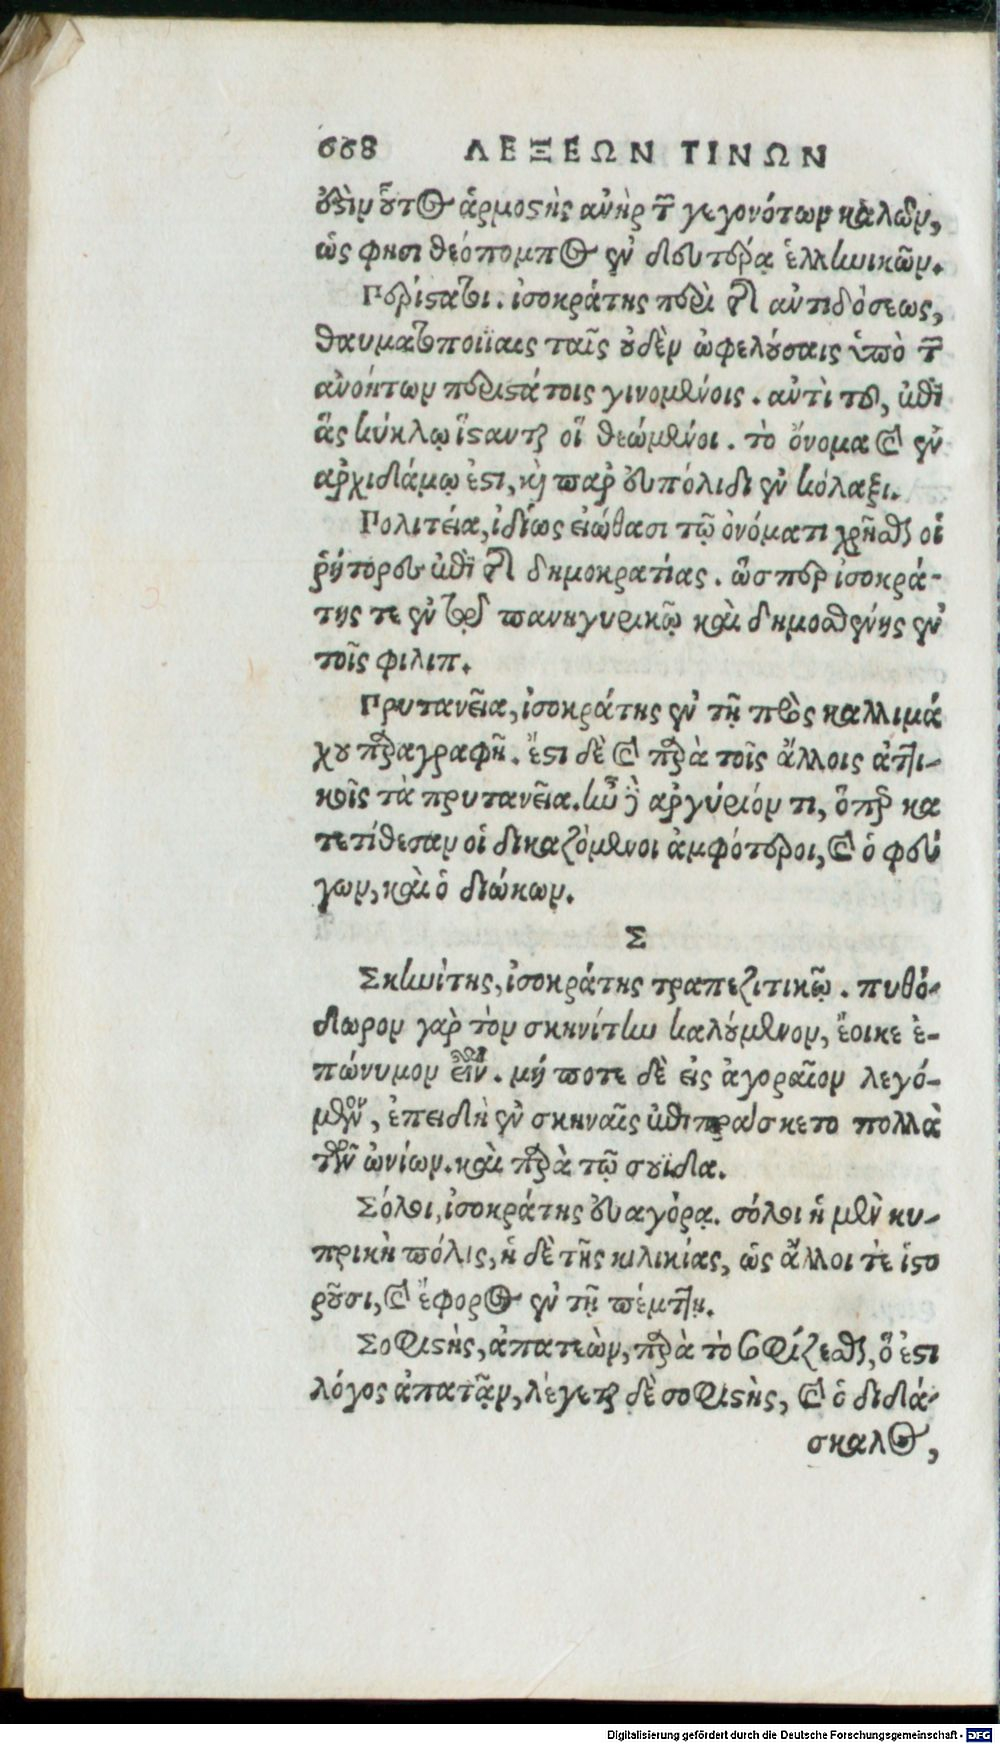 668 ΛΕΞΕΩΝ ΤΙΝΩΝ
οὗτος ἁρμοστὴς ἀνὴρ τῶν γεγονότων καλῶν,
ὥς φησι θεόπομπος ἐν δευτέρᾳ ἑλληνικῶν.
Περίστατοι. ἰσοκράτης περὶ τῆς ἀντιδόσεως,
θαυματοποιΐαις ταῖς οὐδὲν ὠφελούσαις ὑπὸ τῶν
ἀνοήτων περιστάτοις γινομέναις. ἀντὶ τοῦ, ἐφ'
ἃς κύκλῳ ἵστανται οἱ θεώμενοι. τὸ ὄνομα καὶ ἐν
ἀρχιδάμῳ ἐστι, καὶ παρ' εὐπόλιδι ἐν κόλαξι.
Πολιτεία, ἰδίως εἰώθασι τῷ ὀνόματι χρῆσθαι οἱ
ῥήτορες ἐπὶ τῆς δημοκρατίας. ὥσπερ ἰσοκρά-
της τε ἐν τῷ πανηγυρικῷ καὶ δημοσθένης ἐν
τοῖς φιλιπ.
Πρυτανεῖα, ἰσοκράτης ἐν τῇ πρὸς καλλιμά
χου παραγραφῇ. ἔστι δὲ καὶ παρὰ τοῖς ἄλλοις ἀττι-
κοῖς τὰ πρυτανεῖα. ἦν δὲ ἀργύριόν τι, ὅπερ κα
τετίθεσαν οἱ δικαζόμενοι ἀμφότεροι, καὶ ὁ φεύ
γων, καὶ ὁ διώκων.
Σ
Σκηνίτης, ἰσοκράτης τραπεζιτικῷ. πυθό-
δωρον γὰρ τὸν σκηνίτην καλούμενον, ἔοικε ἐ-
πώνυμον εἶναι. μή ποτε δὲ εἰς ἀγοραῖον λεγό-
μενον, ἐπειδὴ ἐν σκηναῖς ἐπιπράσκετο πολλὰ
τῶν ὠνίων. καὶ παρὰ τῷ σουΐδα.
Σόλοι, ἰσοκράτης εὐαγόρᾳ. σόλοι ἡ μὲν κυ-
πρικὴ πόλις, ἡ δὲ τῆς κιλικίας, ὡς ἄλλοι τὲ ἱστο
ροῦσι, καὶ ἔφορος ἐν τῇ πέμπτῃ.
Σοφιστής, ἀπατεὼν, παρὰ τὸ σοφίζεσθαι, ὅ ἐστι
λόγος ἀπατᾷν, λέγεται δὲ σοφιστὴς, καὶ ὁ διδά-
σκαλος,
Digitalisierung gefördert durch die Deutsche Forschungsgemeinschaft - DFG